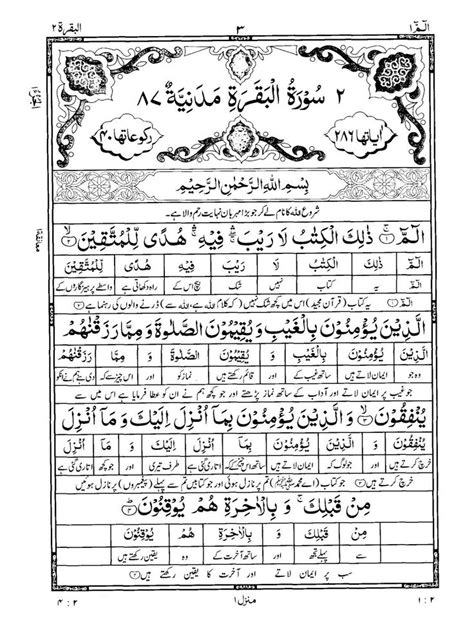 الٓمّٓ ١
٣
البقرة ٢
٢ سُوْرَةُ الْبَقَرَةِ مَدَنِيَّةٌ ٨٧
اٰیاتها ٢٨٦
رکوعاتها ٤٠
بِسْمِ اللهِ الرَّحْمٰنِ الرَّحِيْمِ
شروع اللہ کا نام لے کر جو بڑا مہربان نہایت رحم والا ہے۔
الٓمّٓ ۝١ ذٰلِكَ الْكِتٰبُ لَا رَيْبَ ۛ فِيْهِ ۛ هُدًى لِّلْمُتَّقِيْنَ ۝٢
الٓمّٓ ذٰلِكَ الْكِتٰبُ لَا رَيْبَ فِيْهِ هُدًى لِّلْمُتَّقِيْنَ
الٓمّٓ یہ کتاب نہیں شک بیچ اس کے راہ دکھاتی ہے واسطے پرہیزگاروں کے
الٓمّٓ ۝١ یہ کتاب (قرآن مجید) اس میں کچھ شک نہیں (کہ کلام اللہ ہے، اللہ سے) ڈرنے والوں کی رہنما ہے ۝٢
الَّذِيْنَ يُؤْمِنُوْنَ بِالْغَيْبِ وَيُقِيْمُوْنَ الصَّلٰوةَ وَمِمَّا رَزَقْنٰهُمْ
الَّذِيْنَ يُؤْمِنُوْنَ بِالْغَيْبِ وَ يُقِيْمُوْنَ الصَّلٰوةَ وَ مِمَّا رَزَقْنٰهُمْ
وہ جو ایمان لاتے ہیں ساتھ غیب کے اور قائم رکھتے ہیں نماز کو اور اس چیز سے کہ دی ہے ہم نے انکو
جو غیب پر ایمان لاتے اور آداب کے ساتھ نماز پڑھتے اور جو کچھ ہم نے ان کو عطا فرمایا ہے اس میں سے
يُنْفِقُوْنَ ۝٣ وَالَّذِيْنَ يُؤْمِنُوْنَ بِمَآ اُنْزِلَ اِلَيْكَ وَمَآ اُنْزِلَ
يُنْفِقُوْنَ وَ الَّذِيْنَ يُؤْمِنُوْنَ بِمَآ اُنْزِلَ اِلَيْكَ وَ مَآ اُنْزِلَ
خرچ کرتے ہیں اور جو لوگ کہ ایمان لاتے ہیں ساتھ اس کے کہ اتاری گئی ہے طرف تیری اور جو کچھ اتاری گئی ہے
خرچ کرتے ہیں ۝٣ اور جو کتاب (اے محمد ﷺ) تم پر نازل ہوئی اور جو کتابیں تم سے پہلے (پیغمبروں) پر نازل ہوئیں
مِنْ قَبْلِكَ ۚ وَبِالْاٰخِرَةِ هُمْ يُوْقِنُوْنَ ۝٤
مِنْ قَبْلِكَ وَ بِالْاٰخِرَةِ هُمْ يُوْقِنُوْنَ
سے پہلے تجھ اور ساتھ آخرت کے وہ یقین رکھتے ہیں
سب پر ایمان لاتے اور آخرت کا یقین رکھتے ہیں ۝٤
١ : ٢
منزل ١
٢ : ٤